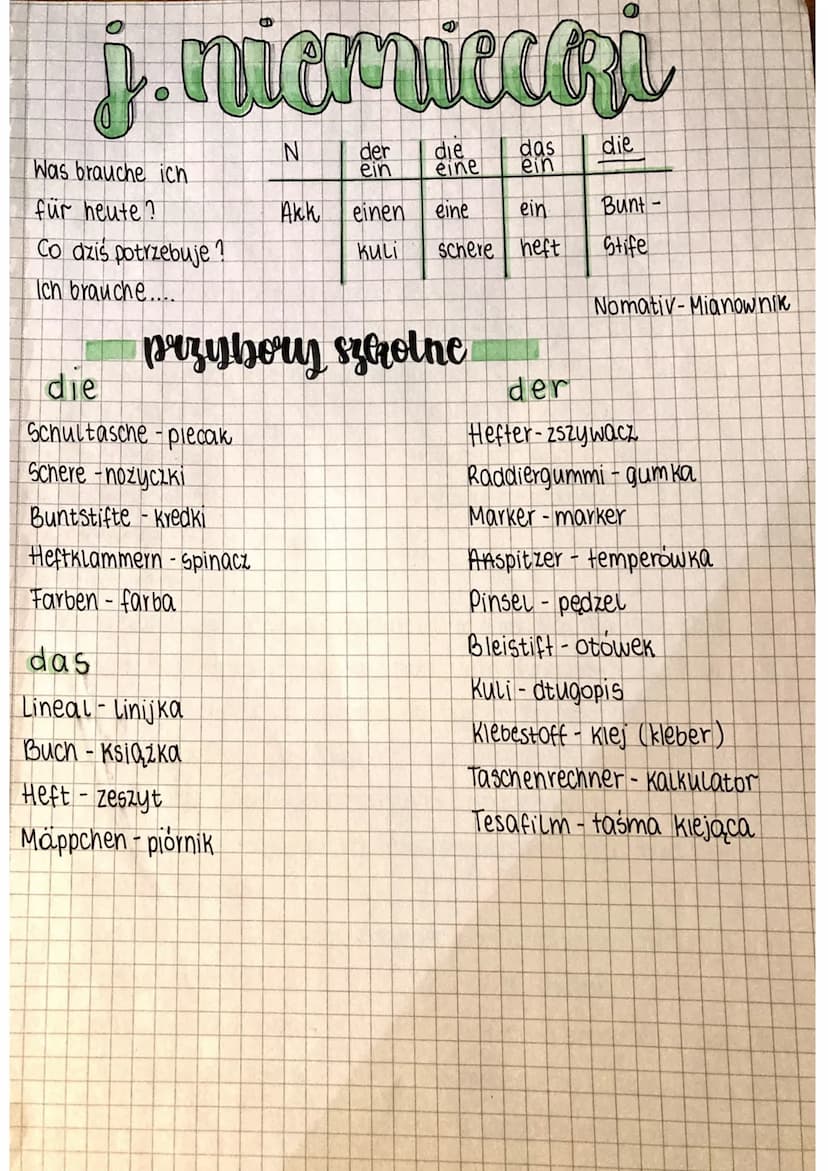 j. niemieceki
Was brauche ich
für heute?
Co dziś potrzebuje?
Ich brauche....
N der die das die
ein eine ein
Akk einen eine ein Bunt-
Kuli schere heft Stife
Nomativ - Mianownik
przybory szkolne
die
Schultasche - plecak
Schere - nożyczki
Buntstifte - kredki
Heftklammern - spinacz
Farben - farba
das
Lineal - linijka
Buch - książka
Heft - zeszyt
Mäppchen - piórnik
der
Hefter - zszywacz
Raddiergummi - gumka
Marker - marker
Anspitzer - temperówka
Pinsel - pędzel
Bleistift - otówek
Kuli - dtugopis
Klebestoff - klej (kleber)
Taschenrechner - kalkulator
Tesafilm - taśma klejąca